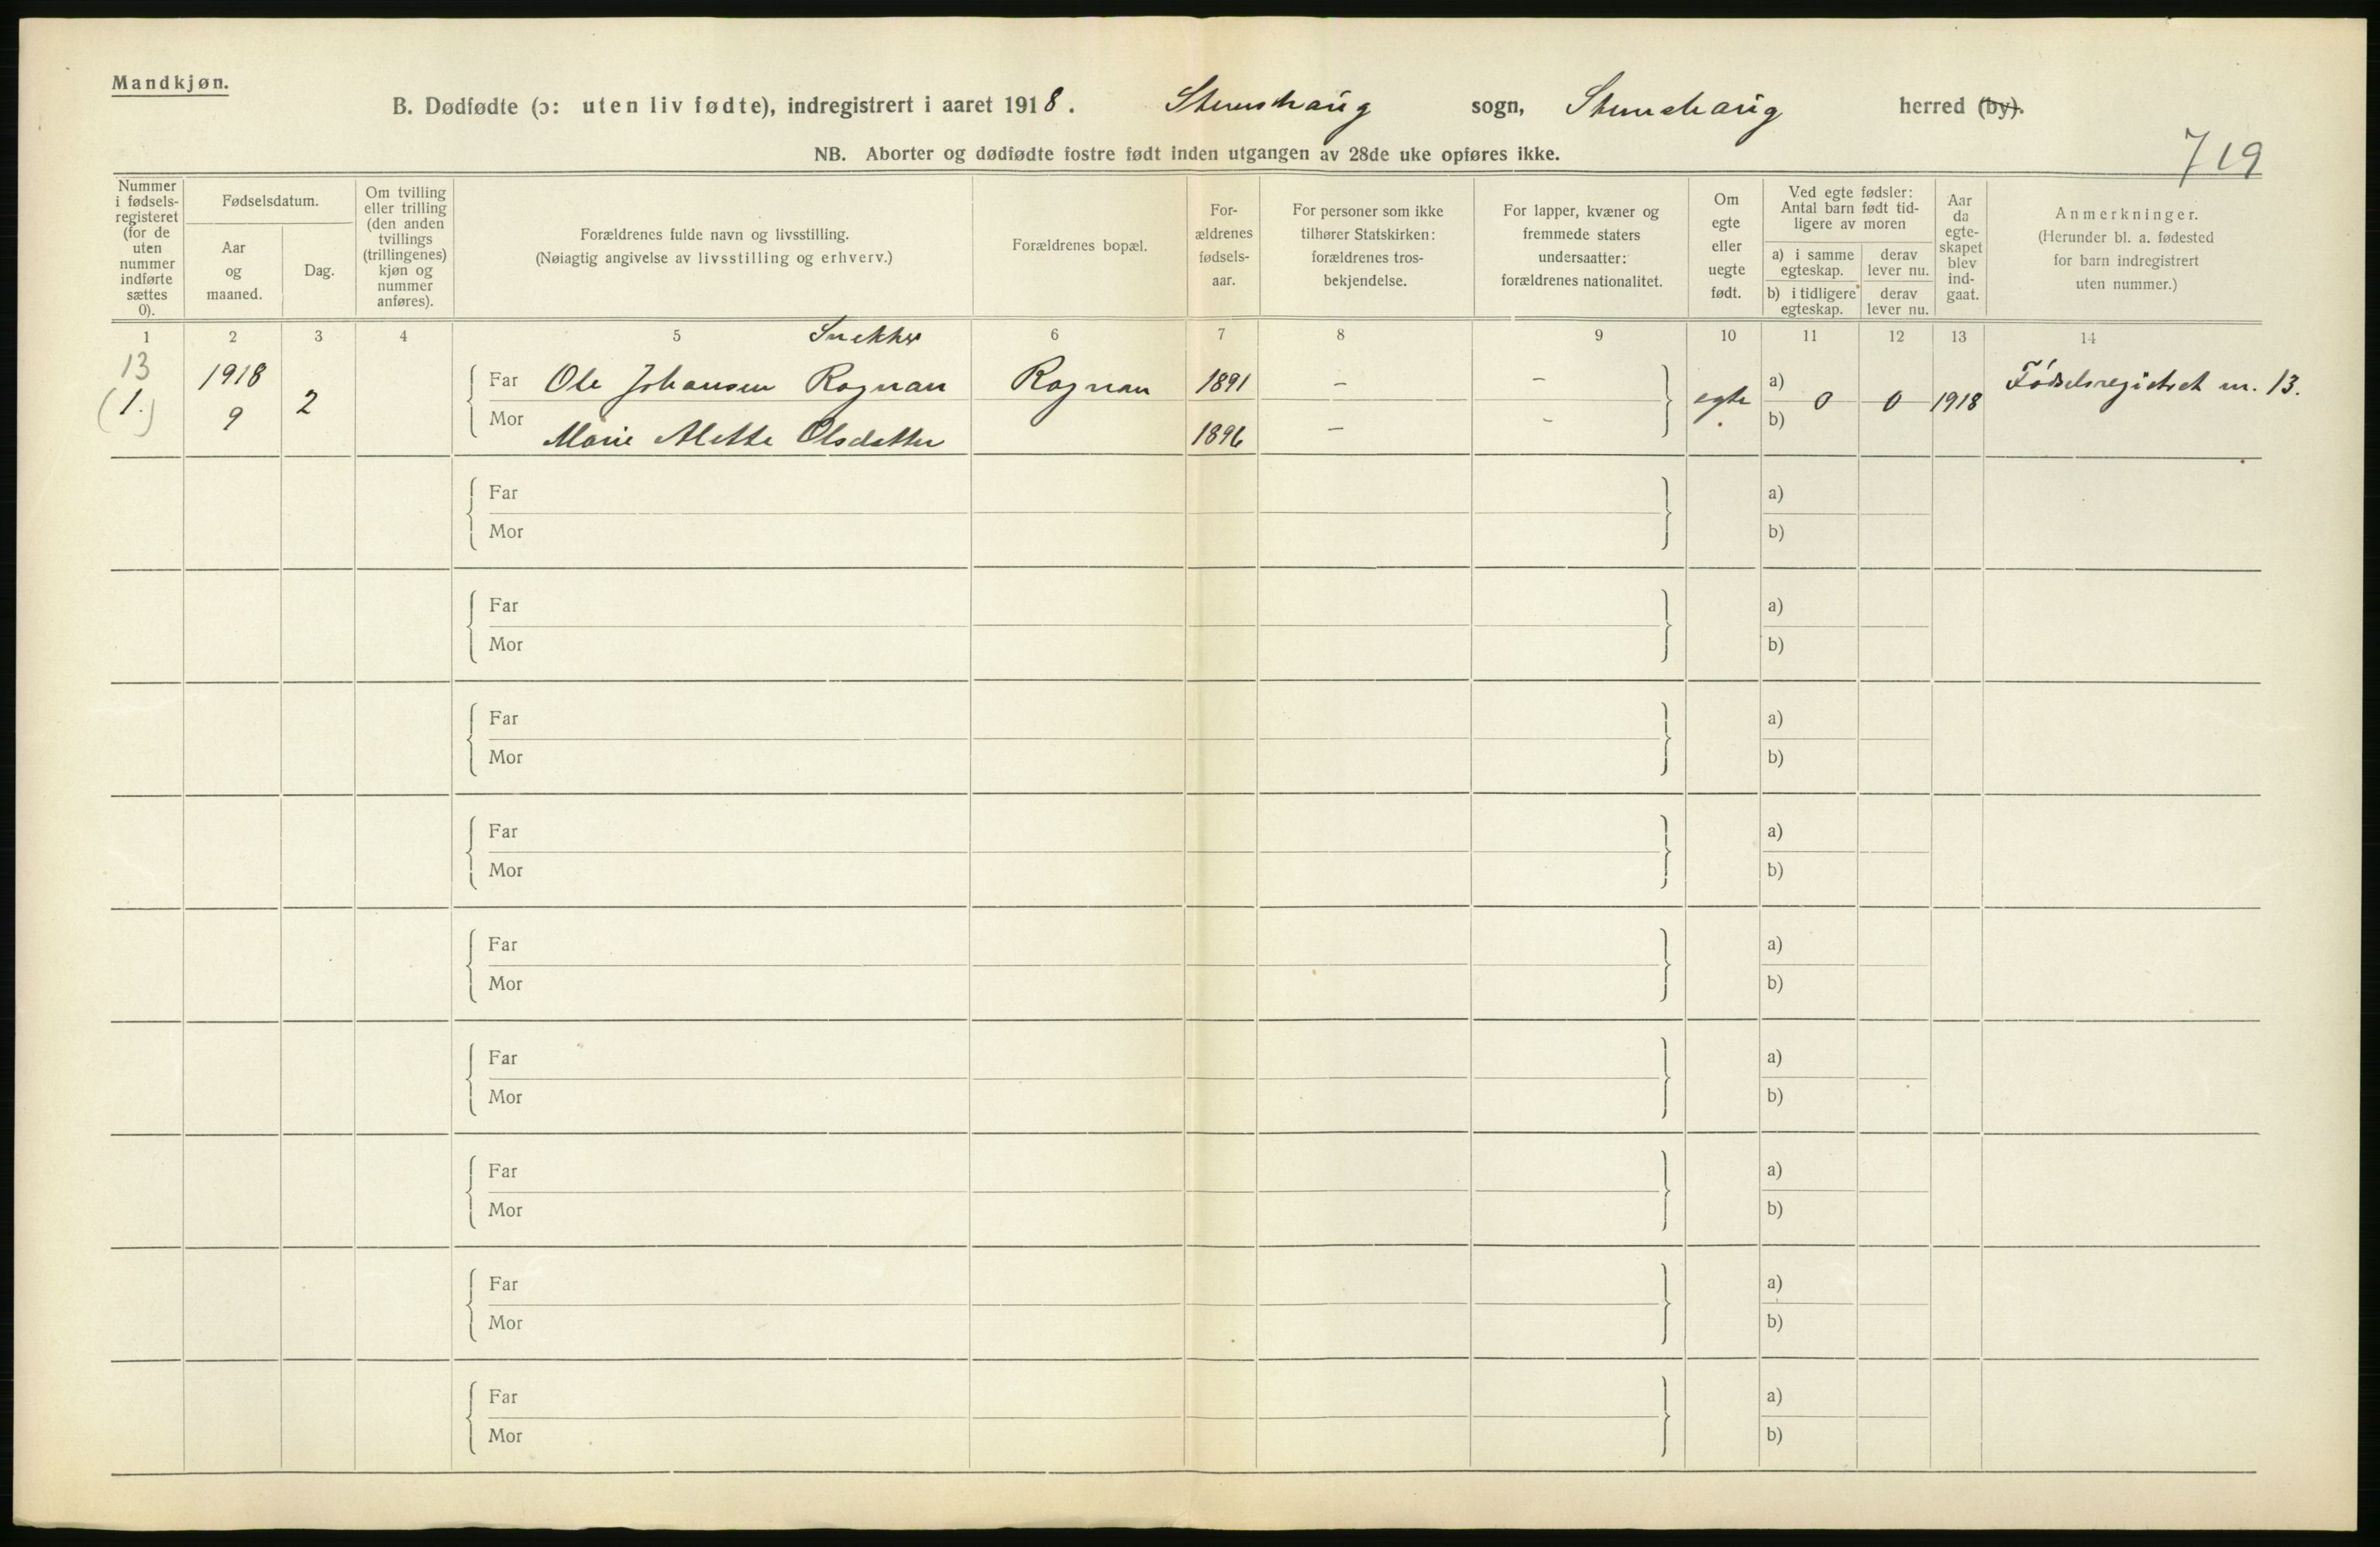 Mandkjøn.
B. Dødfødte (ɔ: uten liv fødte), indregistrert i aaret 1918. Stemshaug sogn, Stemshaug herred (by).
NB. Aborter og dødfødte fostre født inden utgangen av 28de uke opføres ikke.
719
Nummer
i fødsels-
registeret
(for de
uten
nummer
indførte
sættes
0).
Fødselsdatum.
Aar
og
maaned.
Dag.
Om tvilling
eller trilling
(den anden
tvillings
(trillingenes)
kjøn og
nummer
anføres).
Forældrenes fulde navn og livsstilling.
(Nøiagtig angivelse av livsstilling og erhverv.)
Forældrenes bopæl.
For-
ældrenes
fødsels-
aar.
For personer som ikke
tilhører Statskirken:
forældrenes tros-
bekjendelse.
For lapper, kvæner og
fremmede staters
undersaatter:
forældrenes nationalitet.
Om
egte
eller
uegte
født.
Ved egte fødsler:
Antal barn født tid-
ligere av moren
a) i samme
egteskap.
derav
lever nu.
b) i tidligere
egteskap.
derav
lever nu.
Aar
da
egte-
skapet
blev
ind-
gaat.
Anmerkninger.
(Herunder bl. a. fødested
for barn indregistrert
uten nummer.)
1 2 3 4 5 6 7 8 9 10 11 12 13 14
13
(1.)
1918
9
2
Snekker
Far Ole Johansen Rognan
Mor Marie Alette Olsdatter
Rognan
1891
1896
-
-
-
-
egte
a)
b)
0
0
1918
Fødselsregistret nr. 13.
Far
Mor
a)
b)
Far
Mor
a)
b)
Far
Mor
a)
b)
Far
Mor
a)
b)
Far
Mor
a)
b)
Far
Mor
a)
b)
Far
Mor
a)
b)
Far
Mor
a)
b)
Far
Mor
a)
b)